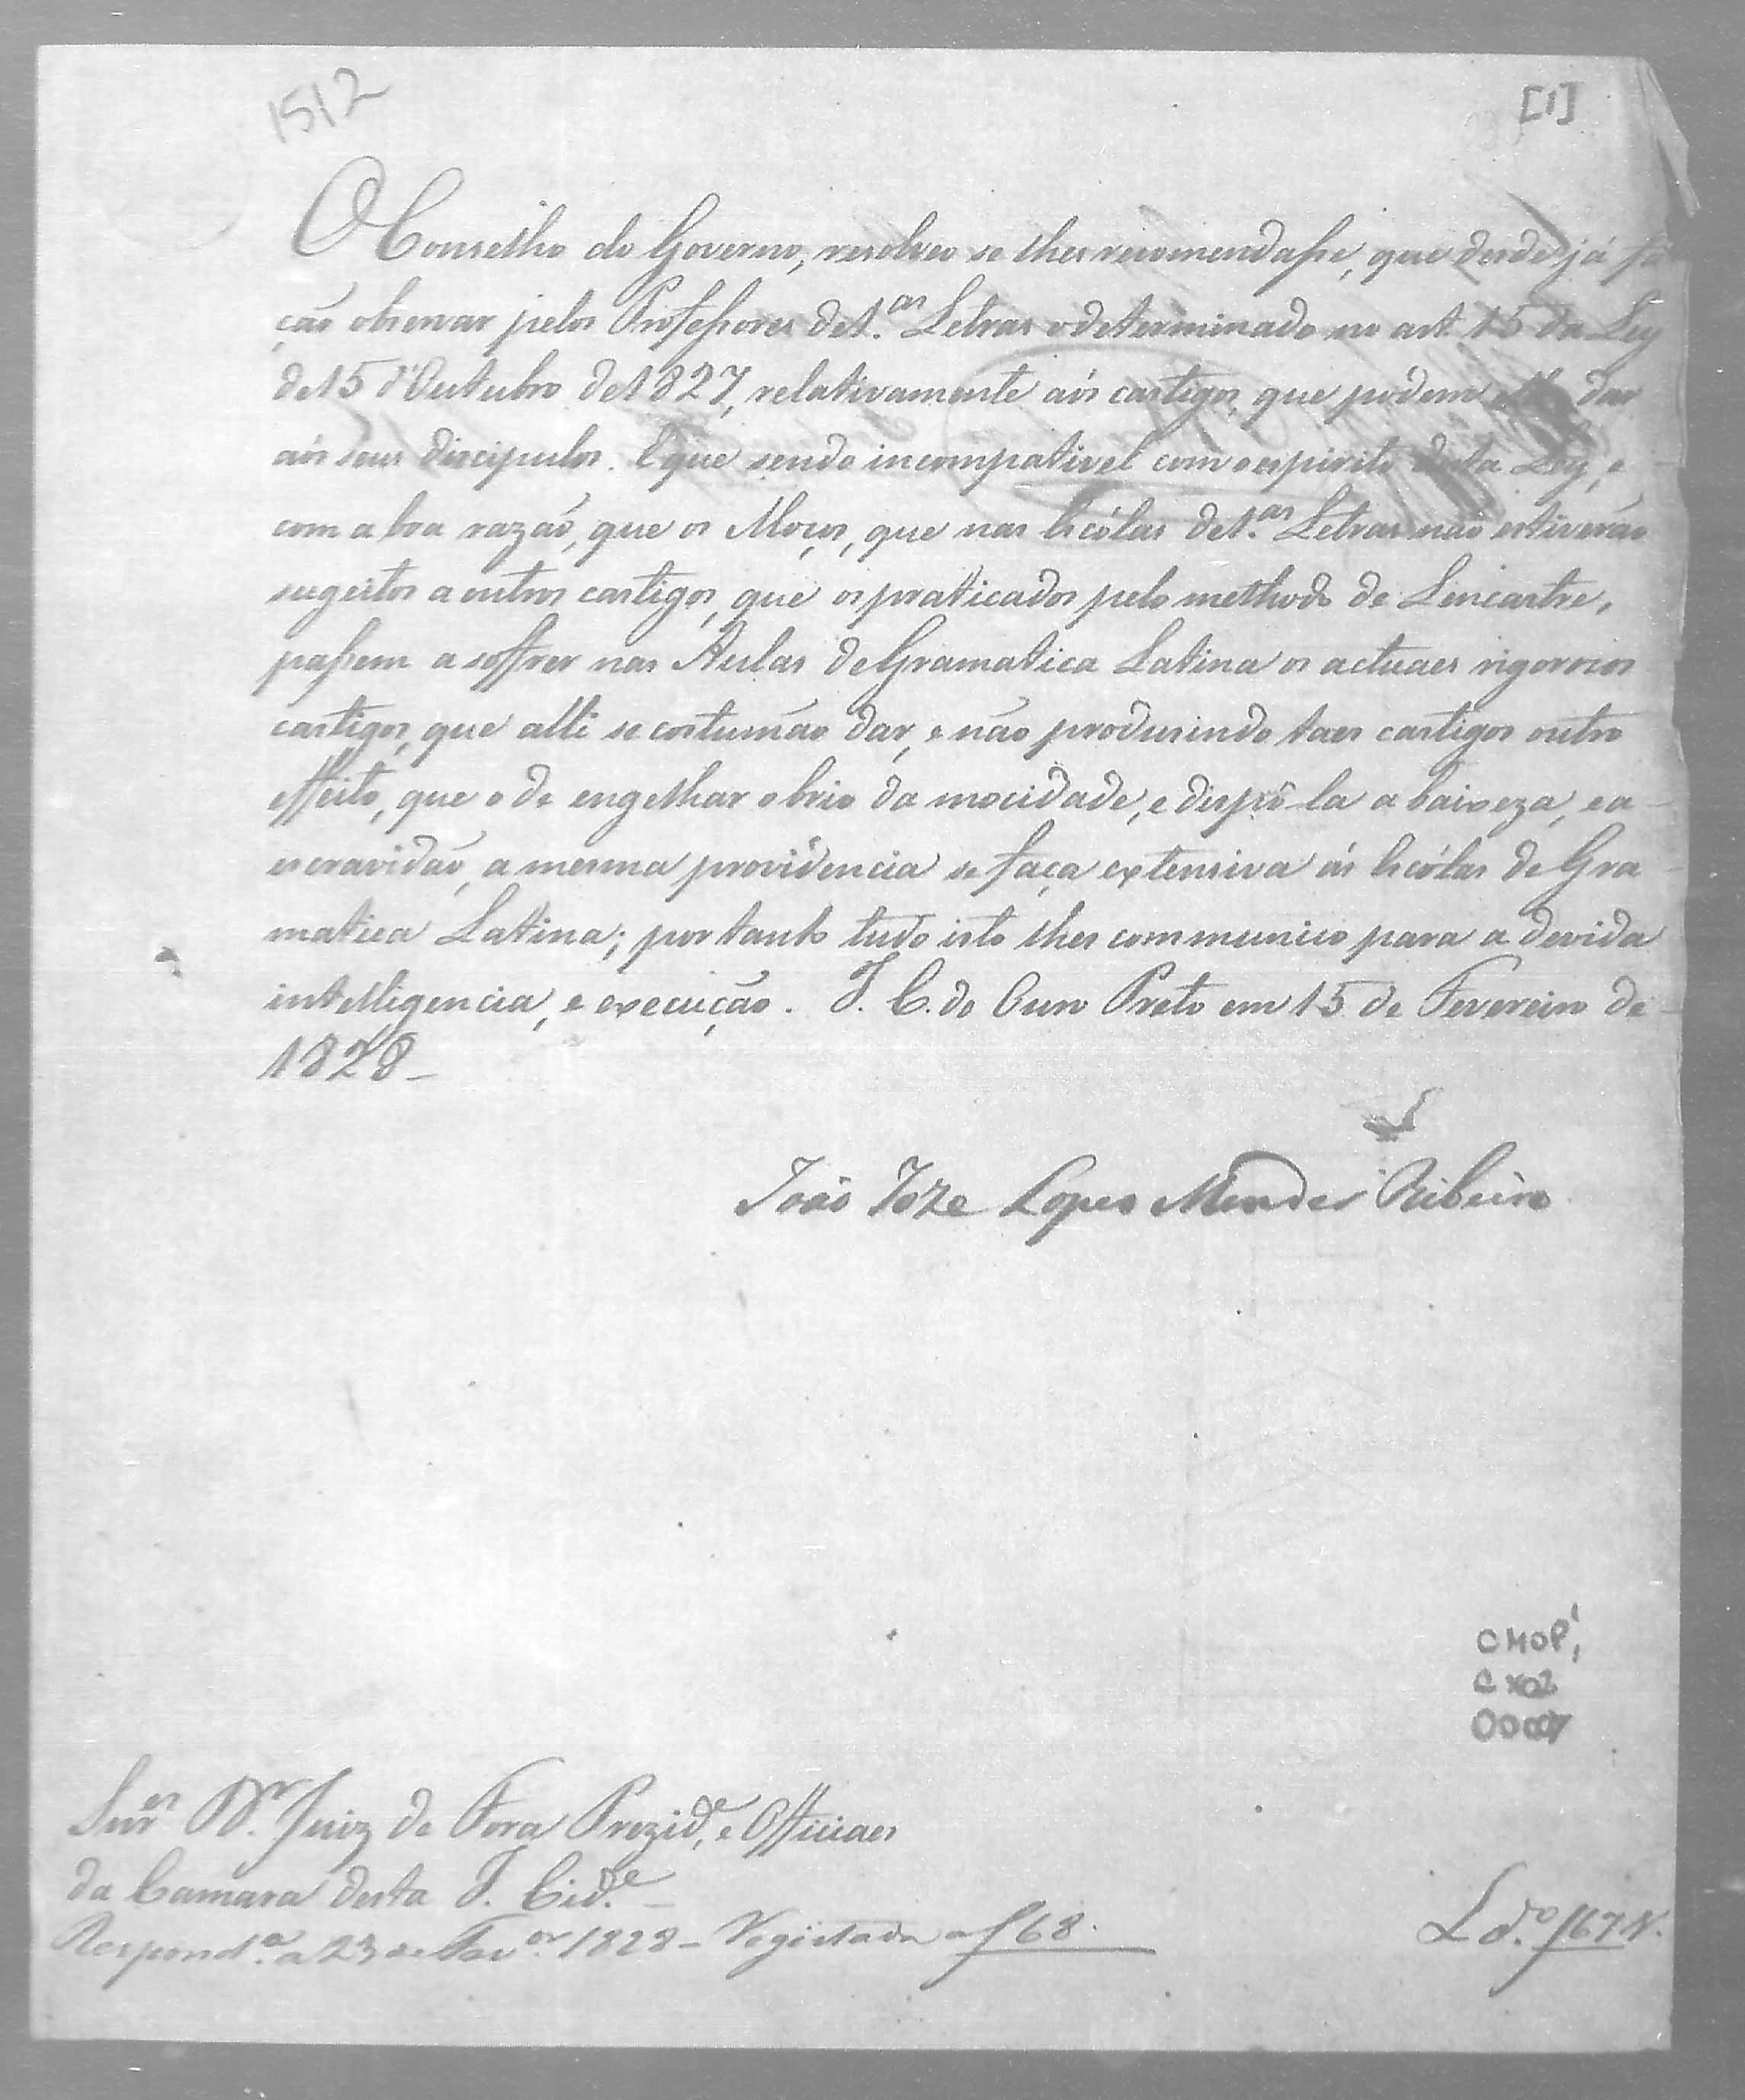 1512
[1]
O Conselho do Governo, resolveo se lhes recomendasse, que desde já fa
ção observar pelos Professores de 1.as Letras o determinado no art. 15 da Ley
de 15 d'Outubro de 1827, relativamente aós castigos, que podem dar
aós seus discipulos. E que sendo incompativel com o espirito desta Ley, e
com a boa razaõ, que os Moços, que nas Escólas de 1.as Letras não estiverão
sugeitos a outros castigos, que os praticados pelo methodo de Lencastre,
passem a soffrer nas Aulas de Gramatica Latina os actuaes rigorosos
castigos, que alli se costumão dar, e não produsindo taes castigos outro
effeito, que o de engelhar o brio da mocidade, e dispô-la a baixeza, e a
escravidaõ, a mesma providencia se faça extensiva ás Escólas de Gra
matica Latina; por tanto tudo isto lhes communico para a devida
intelligencia, e execução. I. C. do Ouro Preto em 15 de Fevereiro de
1828_
João Joze Lopes Mendes Ribeiro
CMOP
CX02
Snr.es D.r Juiz de Fora Prezid.e, e Officiaes
da Camara desta I. Cid.e
Respond.a a 23 de Fev.ro 1828 - Registada a f 68.
L do. f 67 V.